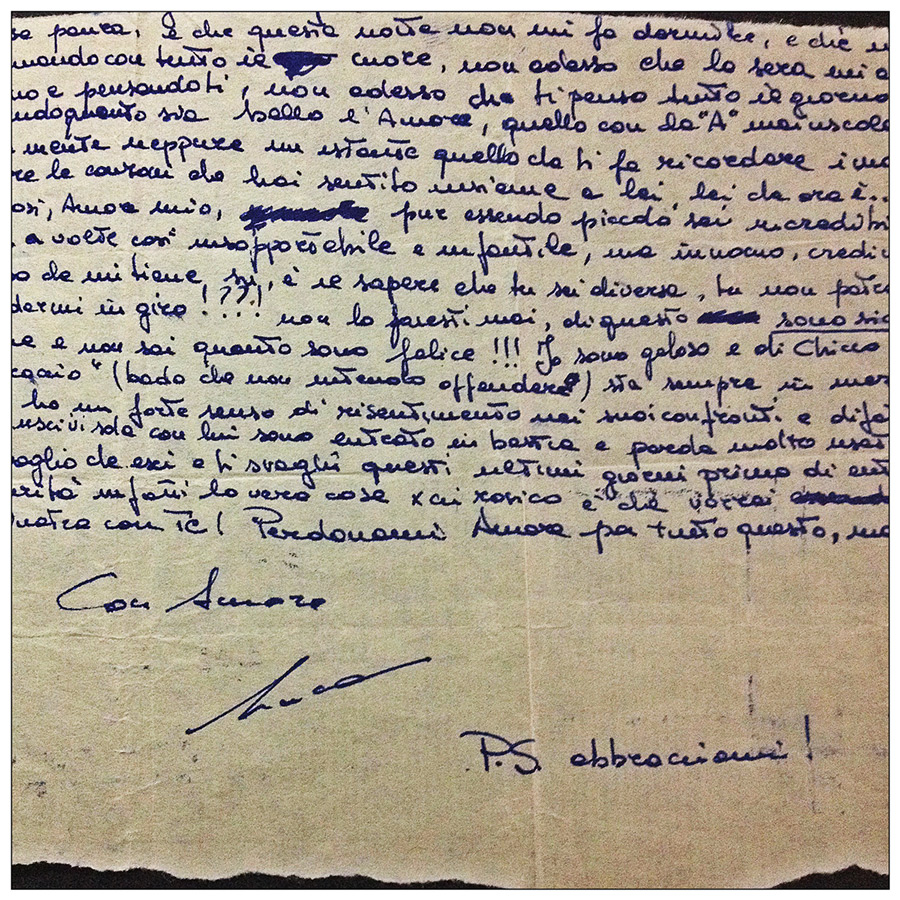 se paura, è che questa notte non mi fa dormire, e che
mando con tutto il cuore, non adesso che la sera mi
no e pensandoti, non adesso che ti penso tutto il giorno
ndo quanto sia bello l'Amore, quello con la "A" maiuscola
mente neppure un istante quello da ti fa ricordare i
re le canzoni che hai sentito insieme a lei, lei che ora è..
osì, Amore mio, pur essendo piccola sei incredibi
, a volte così insopportabile e infantile, ma innocuo, credi
o che mi tiene su, è il sapere che tu sei diversa, tu non potre
dermi in giro!??! non lo faresti mai, di questo sono sic
ne e non sai quanto sono felice!!! Io sono geloso e di Chicco
" (bada che non intendo offendere) sta sempre in
ho un forte senso di risentimento nei suoi confronti e difa
uscivi sola con lui sono entrato in bestia e
oglio che esci e ti svaghi questi ultimi giorni prima di
rità infatti la vera cosa x cui rosico è che vorrei
con Te! Perdonami Amore per tutto questo, ma
Con Amore
Luca
P.S. abbracciami!